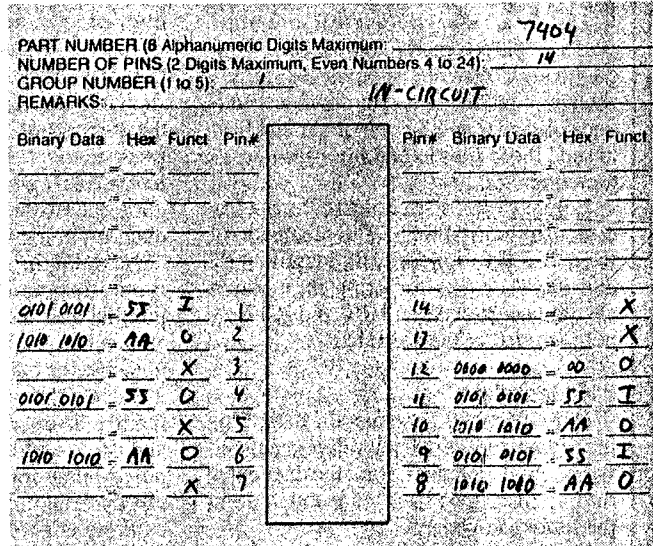 PART NUMBER (6 Alphanumeric Digits Maximum: 7404
NUMBER OF PINS (2 Digits Maximum, Even Numbers 4 to 24): 14
GROUP NUMBER (1 to 5): 1
REMARKS: IN-CIRCUIT
Binary Data Hex Funct Pin# Pin# Binary Data Hex Funct
=  =
=  =
=  =
=  =
=  =
0101 0101 = 55 I 1 14 = X
1010 1010 = AA O 2 13 = X
= X 3 12 0000 0000 = 00 O
0101 0101 = 55 O 4 11 0101 0101 = 55 I
= X 5 10 1010 1010 = AA O
1010 1010 = AA O 6 9 0101 0101 = 55 I
= X 7 8 1010 1010 = AA O